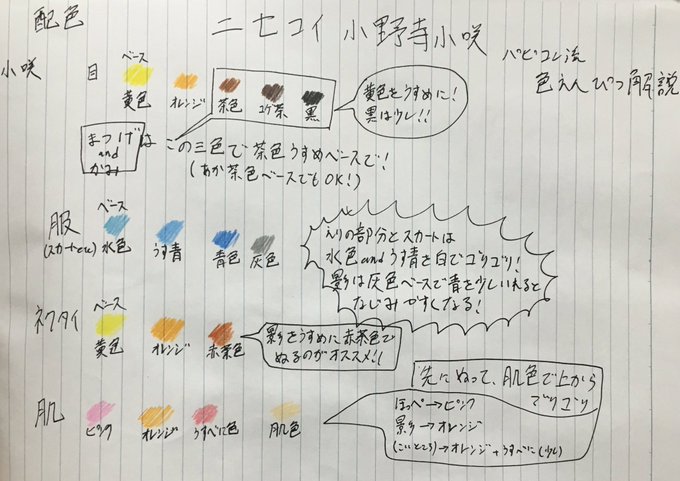 配色
ニセコイ 小野寺小咲
パピコレ流
色えんぴつ解説
小咲
目
ベース
黄色 オレンジ 茶色 コゲ茶 黒
黄色をうすめに!
黒は少し!!
まつげ
and
かみ
は この三色で茶色うすめベースで!
(あか茶色ベースでもOK!)
服
(スカートetc)
ベース
水色 うす青 青色 灰色
えりの部分とスカートは
水色andうす青を白でゴリゴリ!
影は灰色ベースで青を少しいれると
なじみやすくなる!
ネクタイ
ベース
黄色 オレンジ 赤茶色
影をうすめに赤茶色で
ぬるのがオススメ!!
肌
ピンク オレンジ うすべに色 肌色
先にぬって、肌色で上から
ゴリゴリ
ほっぺ→ピンク
影→オレンジ
(こいところ)→オレンジ+うすべに(少し)